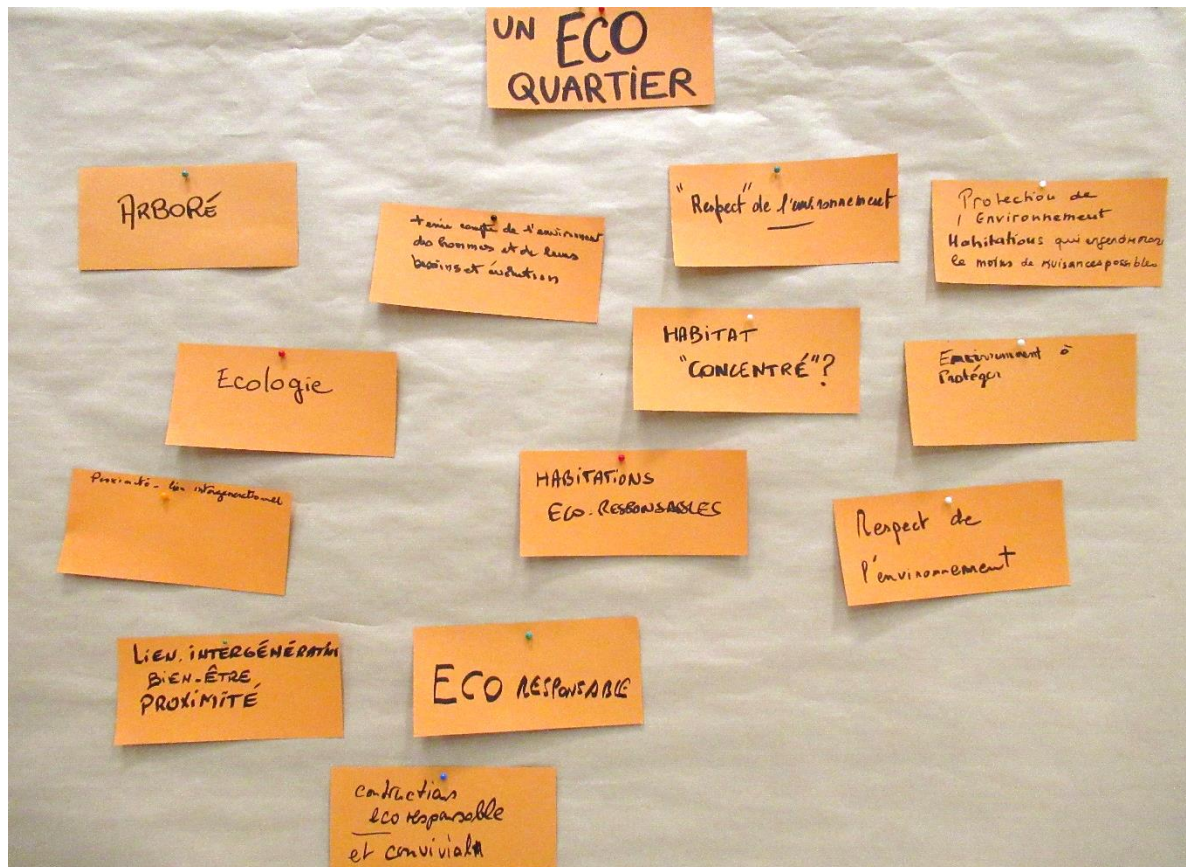 UN ECO
QUARTIER
ARBORÉ
tenir compte de l'environnement
des hommes et de leurs
besoins et évolution
"Respect" de l'environnement
Protection de
l'Environnement
Habitations qui engendrerons
le moins de nuisances possibles
Ecologie
HABITAT
"CONCENTRÉ"?
Environnement à
Protéger
Proximité - lien intergenerationnel
HABITATIONS
ECO-RESPONSABLES
Respect de
l'environnement
LIEN. INTERGÉNÉRATION
BIEN-ÊTRE
PROXIMITÉ
ECO RESPONSABLE
Contructions
eco responsable
et conviviale